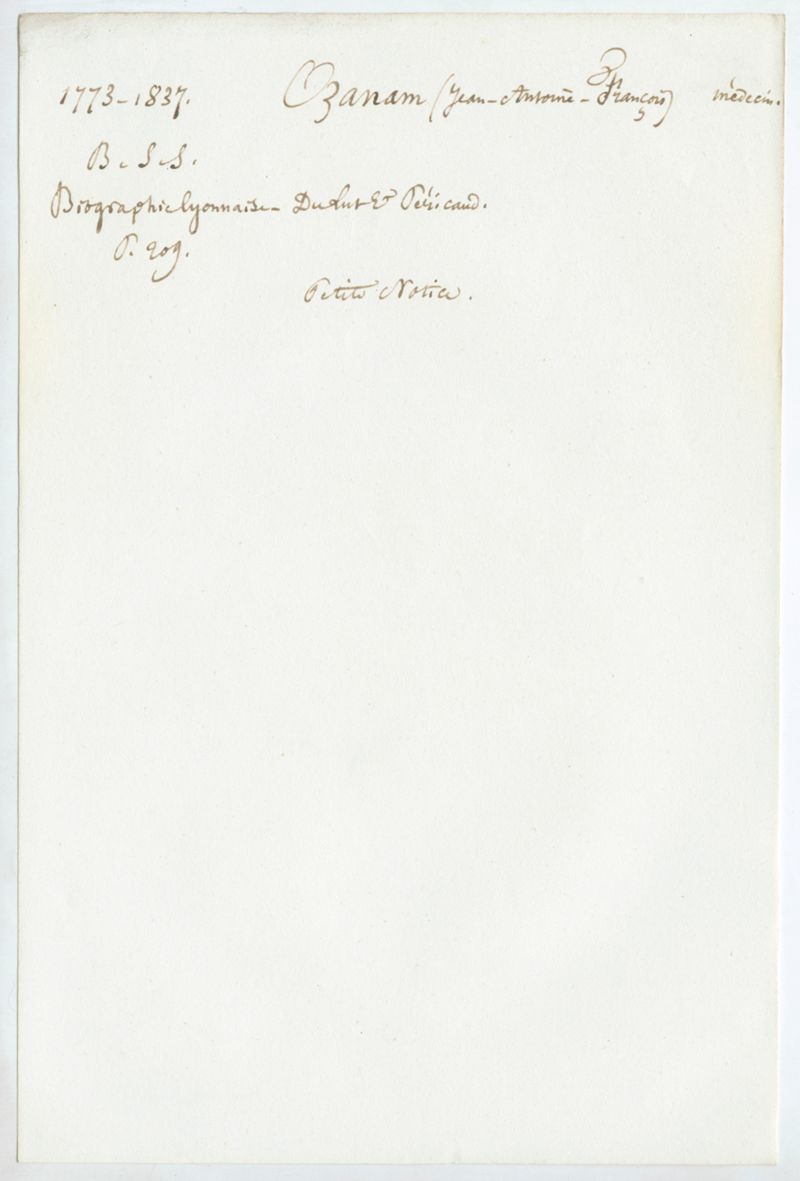 1773-1837. Ozanam (Jean-Antoine-François) médecin.
B. S. S.
Biographie lyonnaise - Dulut & Péricaud.
P. 209.
Petite Notice.